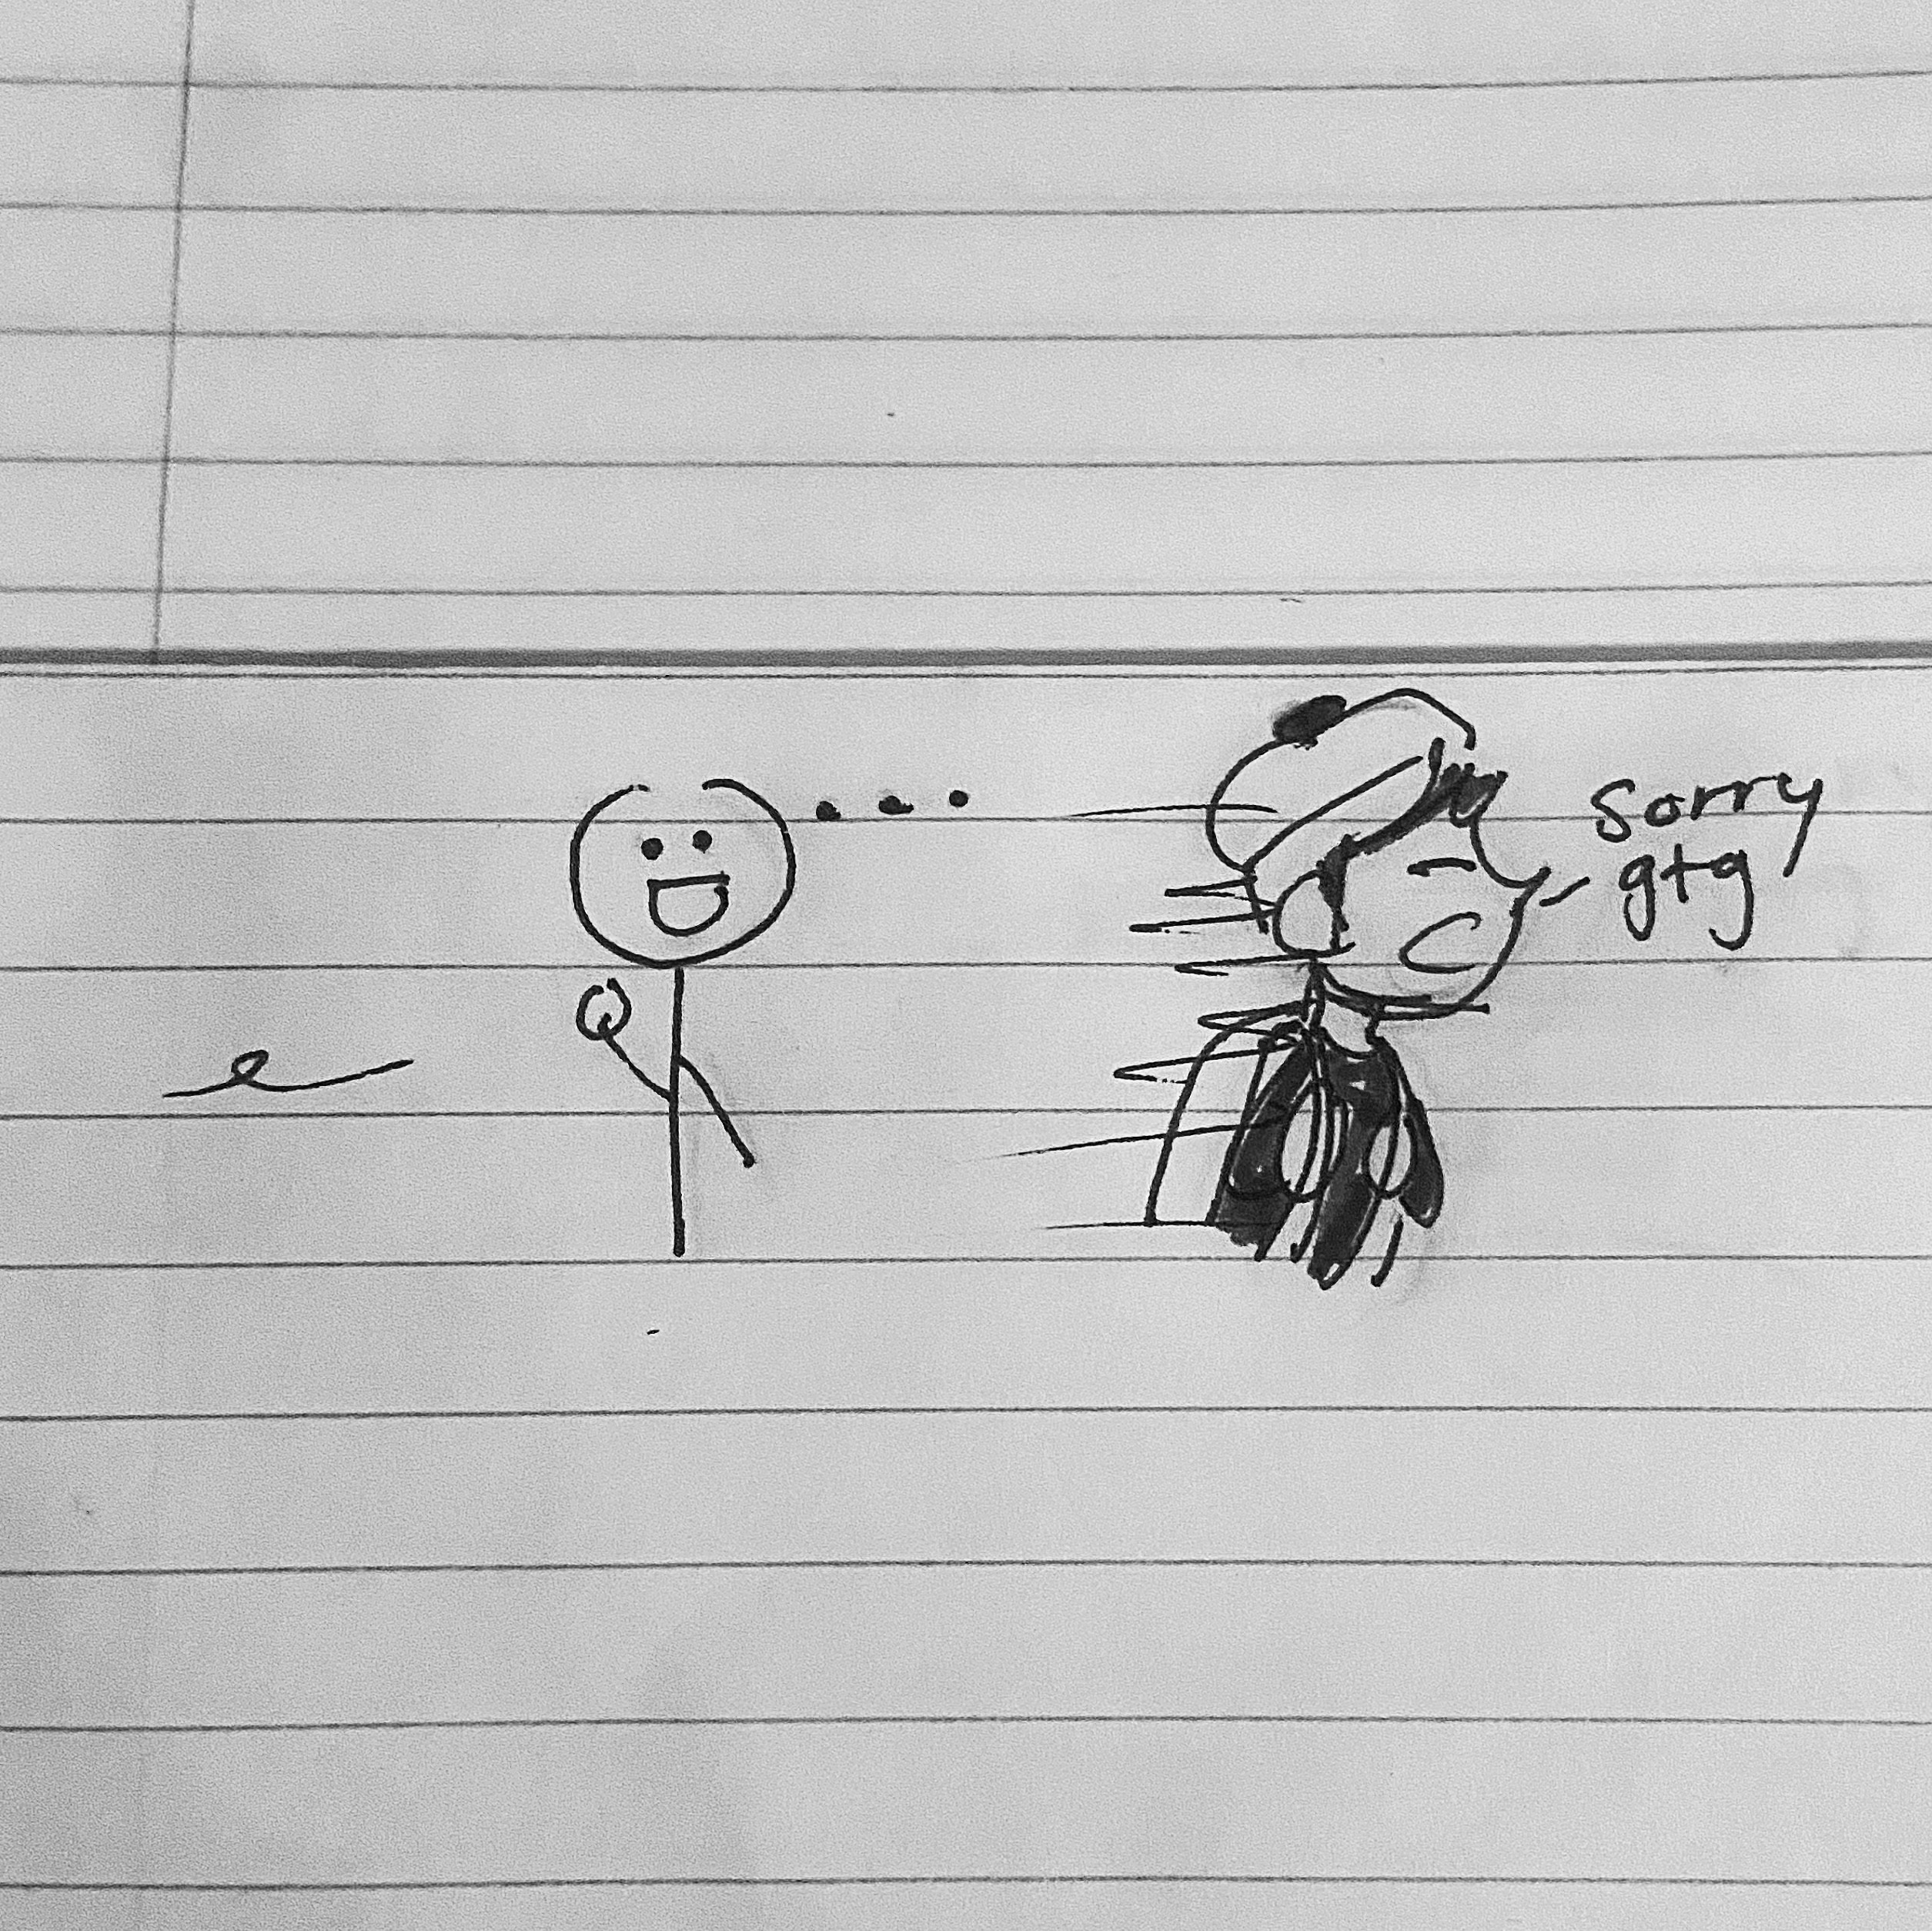 ...
sorry
gtg